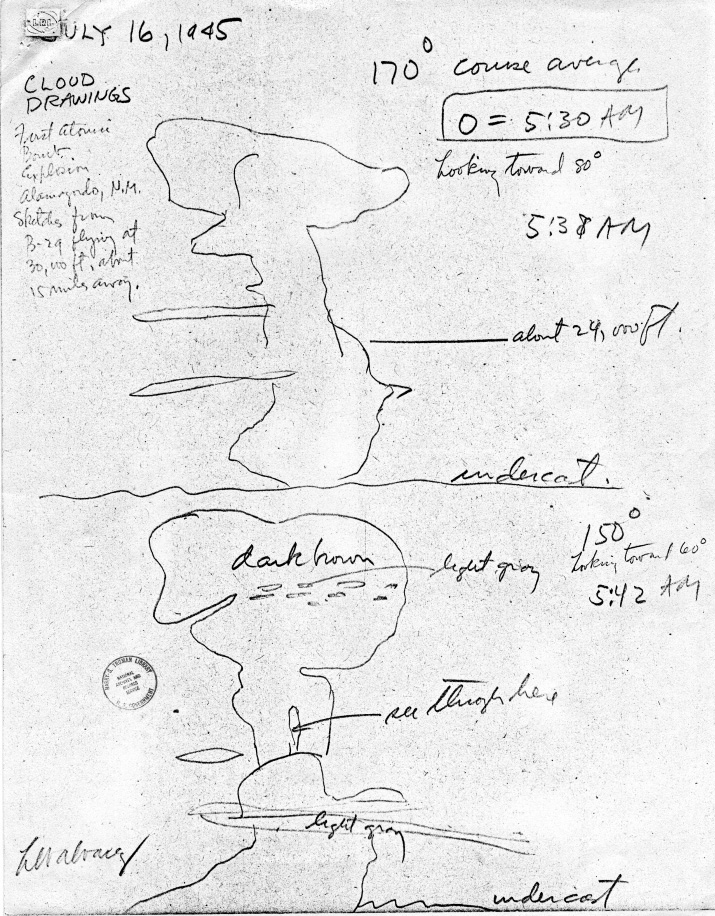 JULY 16, 1945
CLOUD
DRAWINGS
First Atomic
Bomb
Explosion
Alamogordo, N.M.
Sketches from
B-29 flying at
30,000 ft, about
15 miles away.
170° course average
0 = 5:30 AM
Looking toward 80°
5:38 AM
about 24,000 ft.
undercast.
150°
Looking toward 60°
5:42 AM
dark brown
light gray
HARRY S. TRUMAN LIBRARY
NATIONAL
ARCHIVES AND
RECORDS
SERVICE
U.S. GOVERNMENT
see through here
light gray
LW Alvarez
undercast